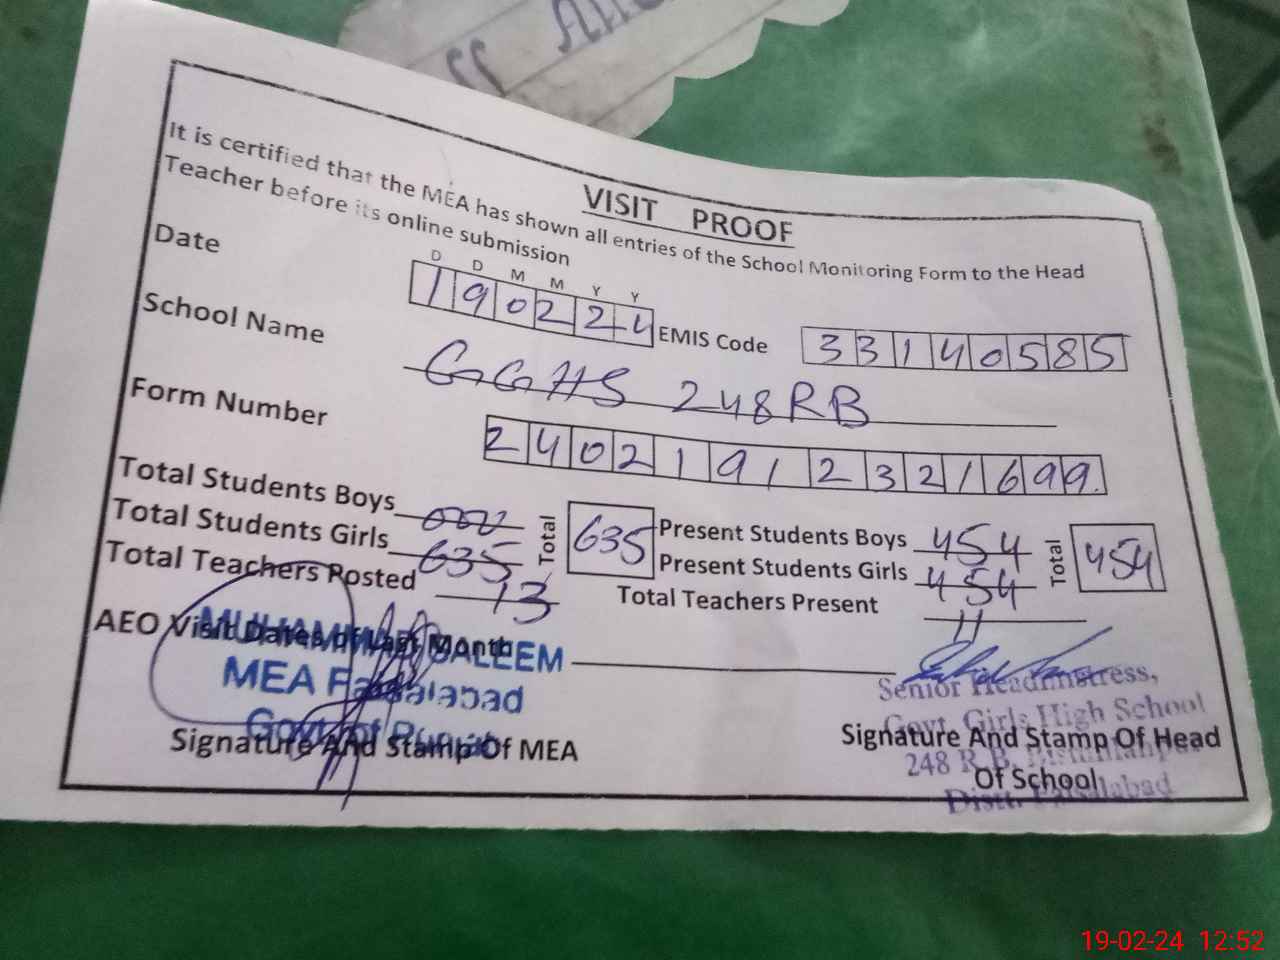 VISIT PROOF
It is certified that the MEA has shown all entries of the School Monitoring Form to the Head
Teacher before its online submission
D D M M Y Y
Date 190224 EMIS Code 33140585
School Name GGHS 248RB
Form Number 24021912321699.
Total Students Boys 000 Total 635 Present Students Boys 454 Total 454
Total Students Girls 635 Present Students Girls 454
Total Teachers Posted 13 Total Teachers Present 11
AEO Visit Dates of Last Month
MUHAMMAD SALEEM
MEA Faisalabad
Govt of Punjab
Signature And Stamp Of MEA
Senior Headmistress,
Govt. Girls High School
248 R.B.
Distt. Faisalabad
Signature And Stamp Of Head
Of School
19-02-24 12:52